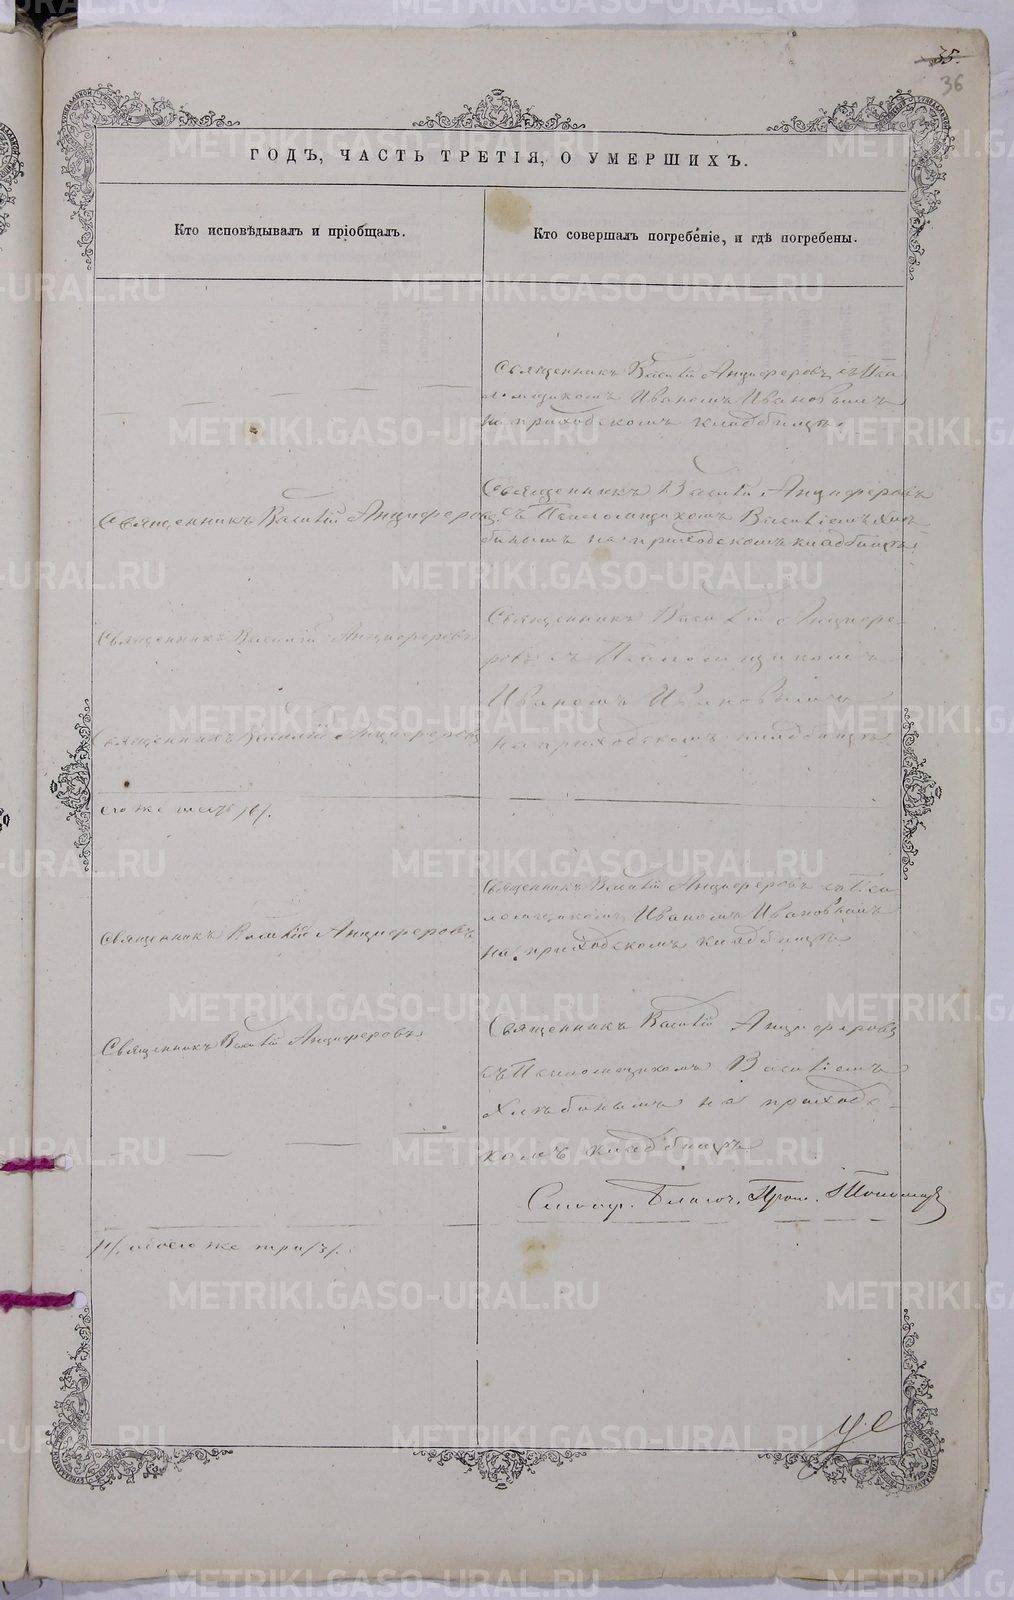 35.
36
ГОДЪ, ЧАСТЬ ТРЕТІЯ, О УМЕРШИХЪ.
Кто исповѣдывалъ и пріобщалъ.
Кто совершалъ погребеніе, и гдѣ погребены.
Священникъ Василій Анциферовъ съ Пса
ломщикомъ Иваномъ Ивановымъ
на приходскомъ кладбищѣ.
Священникъ Василій Анциферовъ.
Священникъ Василій Анциферовъ
съ Псаломщикомъ Василіемъ Хлѣ
бинымъ на приходскомъ кладбищѣ.
Священникъ Василій Анциферовъ
Священникъ Василій Анцифе-
ровъ съ Псаломщикомъ
Иваномъ Ивановымъ
на приходскомъ кладбищѣ
Священникъ Василій Анциферовъ
его же шесть /6/.
Священникъ Василій Анциферовъ
Священникъ Василій Анциферовъ съ Пса
ломщикомъ Иваномъ Ивановымъ
на приходскомъ кладбищѣ
Священникъ Василій Анциферовъ
Священникъ Василій Анциферовъ
съ Псаломщикомъ Василіемъ
Хлѣбинымъ на приходс-
комъ кладбищѣ
Благоч. Прот.
/1/, обоего же три /3/.
METRIKI.GASO-URAL.RU